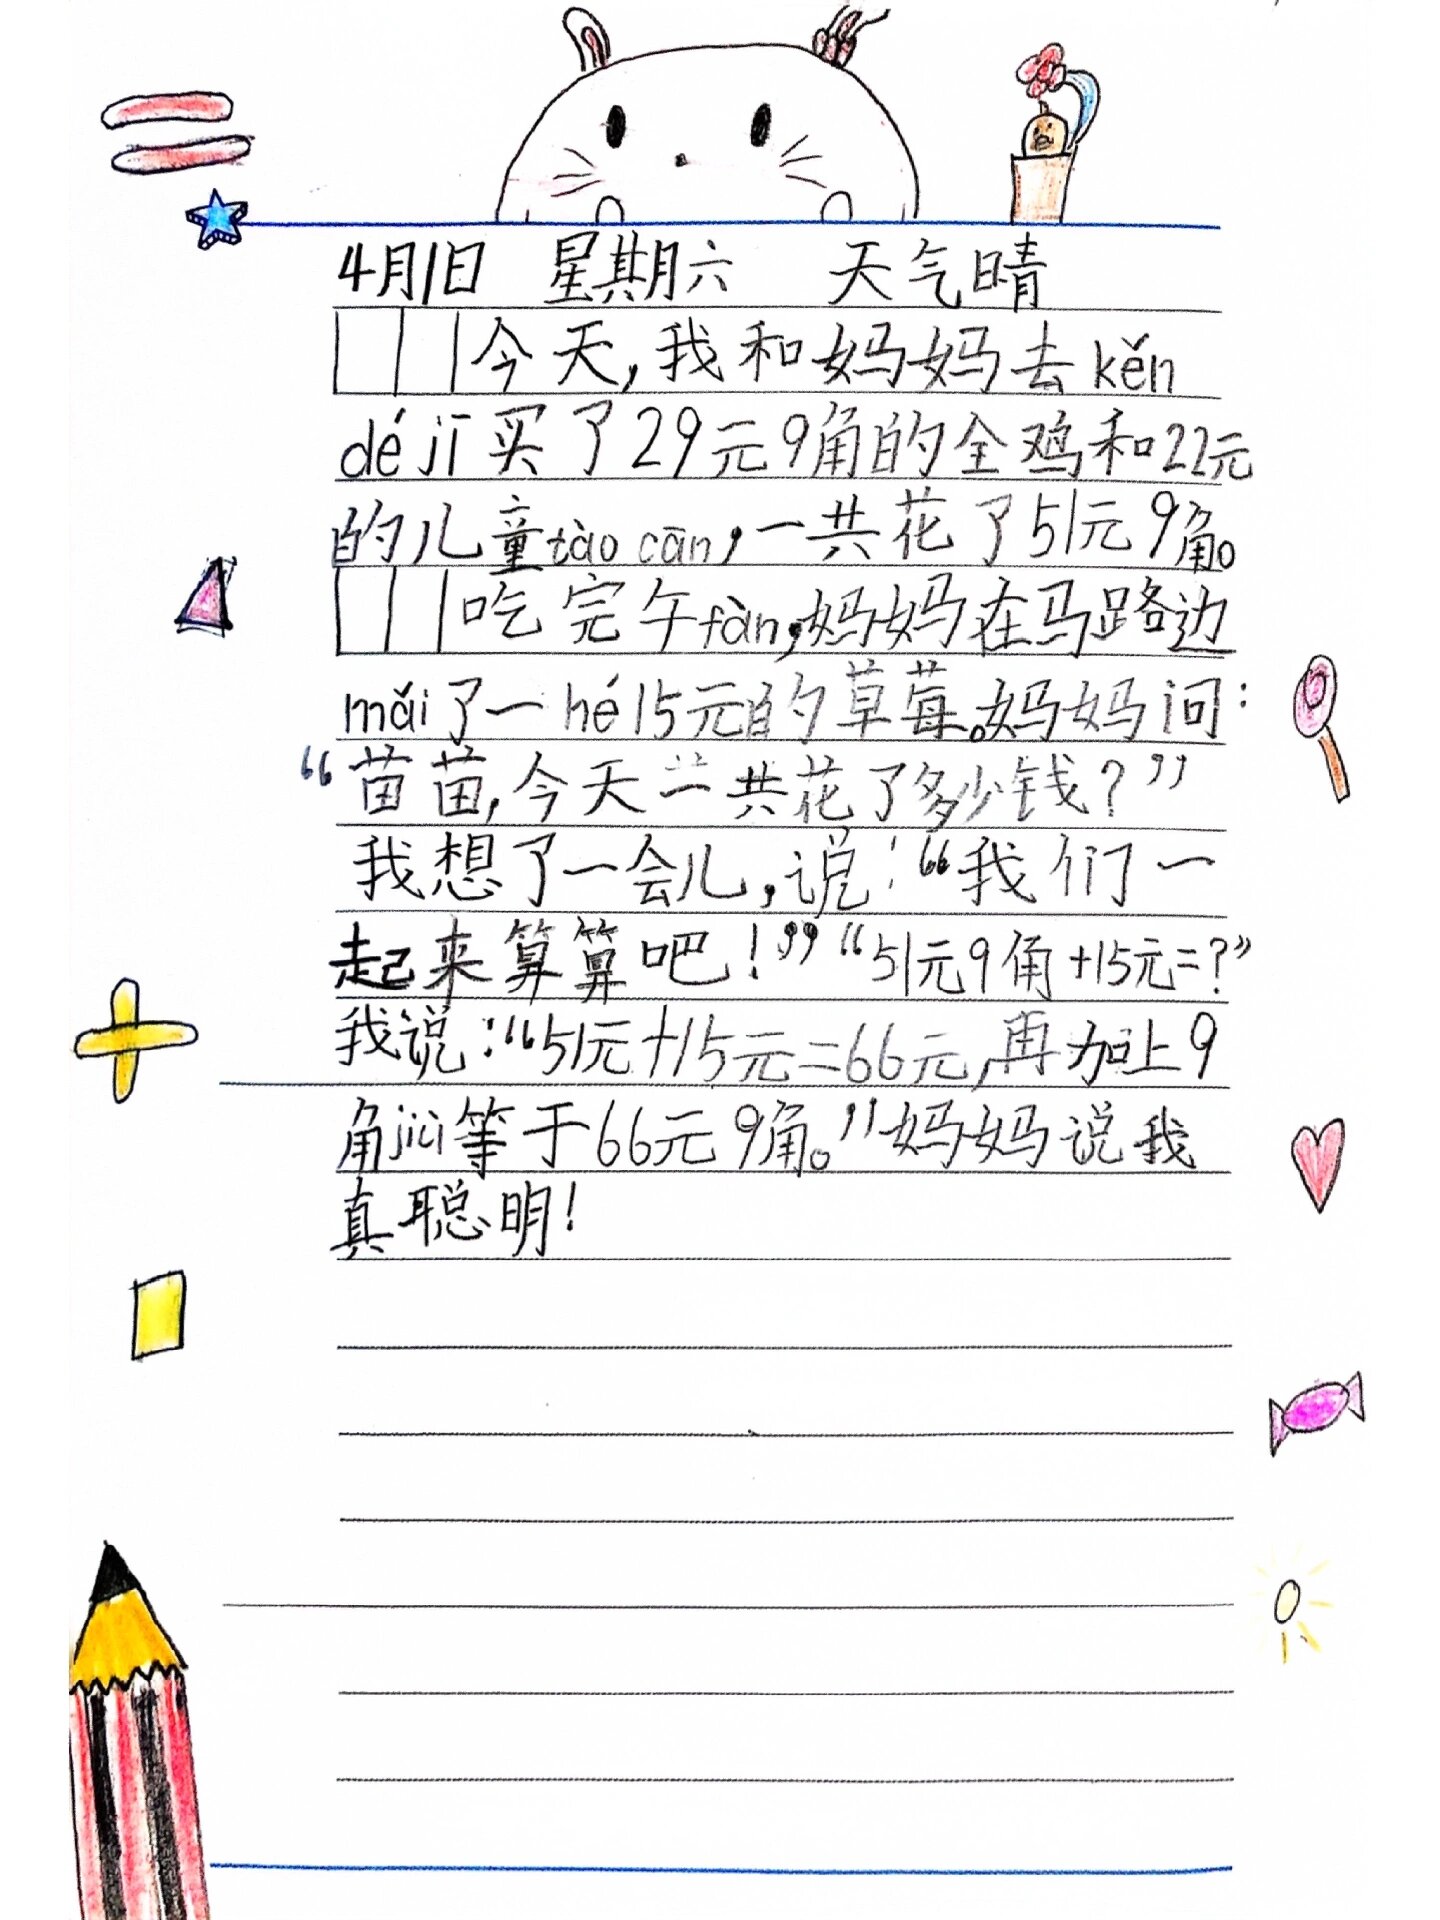 4月1日 星期六 天气晴
今天,我和妈妈去kěn
dé jī买了29元9角的全鸡和22元
的儿童tào cān,一共花了51元9角。
吃完午fàn,妈妈在马路边
mǎi了一hé15元的草莓。妈妈问:
“苗苗,今天一共花了多少钱?”
我想了一会儿,说:“我们一
起来算算吧!”“51元9角+15元=?”
我说:“51元+15元=66元,再加上9
角jiù等于66元9角。”妈妈说我
真聪明!